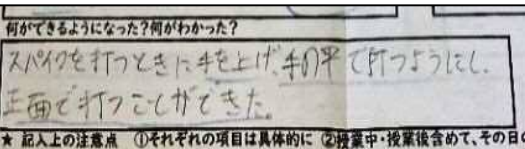 何ができるようになった?何がわかった?
スパイクを打つときに手を上げ、手の平で打つようにし、
正面で打つことができた。
★ 記入上の注意点 ①それぞれの項目は具体的に ②授業中・授業後含めて、その日の